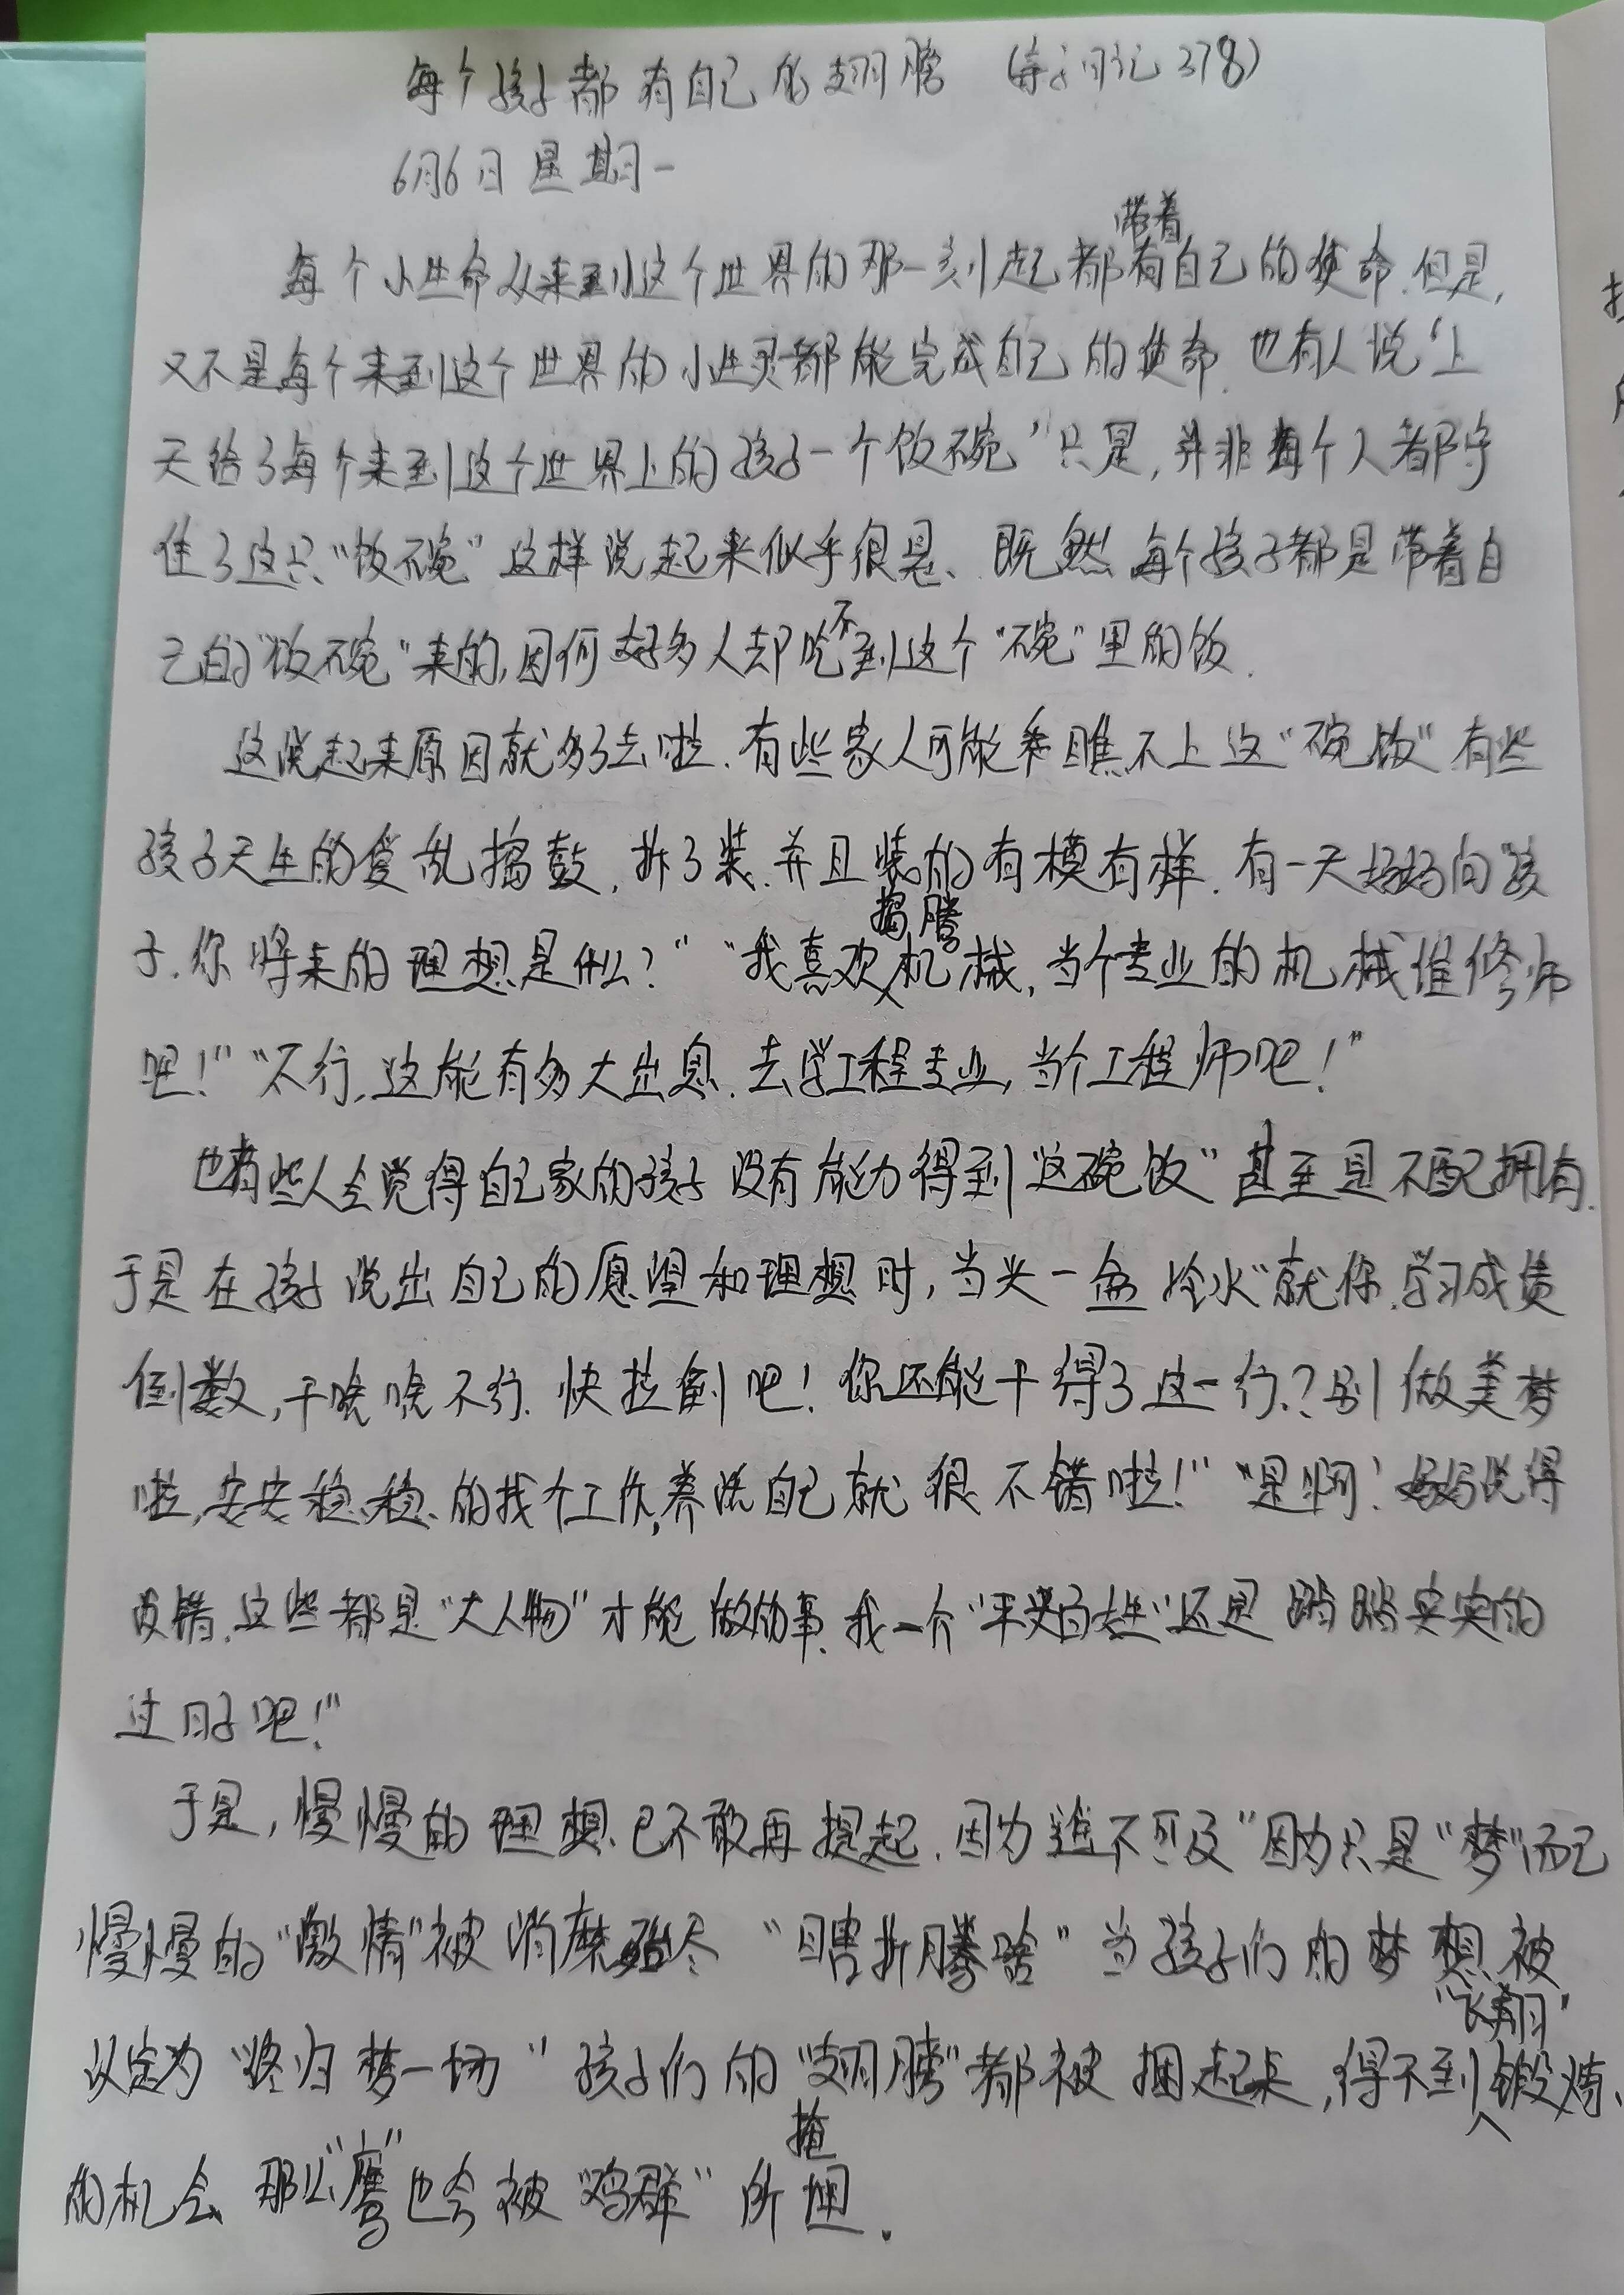 每个孩子都有自己的翅膀 (亲子日记278)
6月6日 星期一
带着
每个小生命从来到这个世界的那一刻起都有自己的使命.但是,
又不是每个来到这个世界的小生灵都能完成自己的使命.也有人说“上
天给了每个来到这个世界上的孩子一个饭碗”只是,并非每个人都守
住了这只“饭碗”这样说起来似乎很是、既然每个孩子都是带着自
己的“饭碗”来的,因何好多人却吃不到这个“碗”里的饭.
这说起来原因就多了去啦.有些家人可能看瞧不上这“碗饭”有些
孩子天生的爱乱捣鼓,拆了装.并且装的有模有样.有一天妈妈问“孩
捣腾
子.你将来的理想是什么?”“我喜欢机械,当个专业的机械维修师
吧!”“不行,这能有多大出息.去学工程专业,当个工程师吧!”
也有些人会觉得自己家的孩子没有能力得到“这碗饭”甚至是不配拥有.
于是在孩子说出自己的愿望和理想时,当头一盆冷水“就你.学习成绩
倒数,干啥啥不行.快拉倒吧!你还能干得了这一行?别做美梦
啦,安安稳稳的找个工作,养活自己就很不错啦!”“是啊!妈妈说得
没错.这些都是“大人物”才能做的事.我一个“平头百姓”还是踏踏实实的
过日子吧!”
于是,慢慢的理想已不敢再提起.因为遥不可及”因为只是“梦”而已
慢慢的“激情”被消磨殆尽“瞎折腾啥”当孩子们的梦想被
“飞翔”
认定为“终归梦一场”孩子们的“翅膀”都被捆起来,得不到锻炼
的机会.那么“鹰”也会被“鸡群”所掩埋.